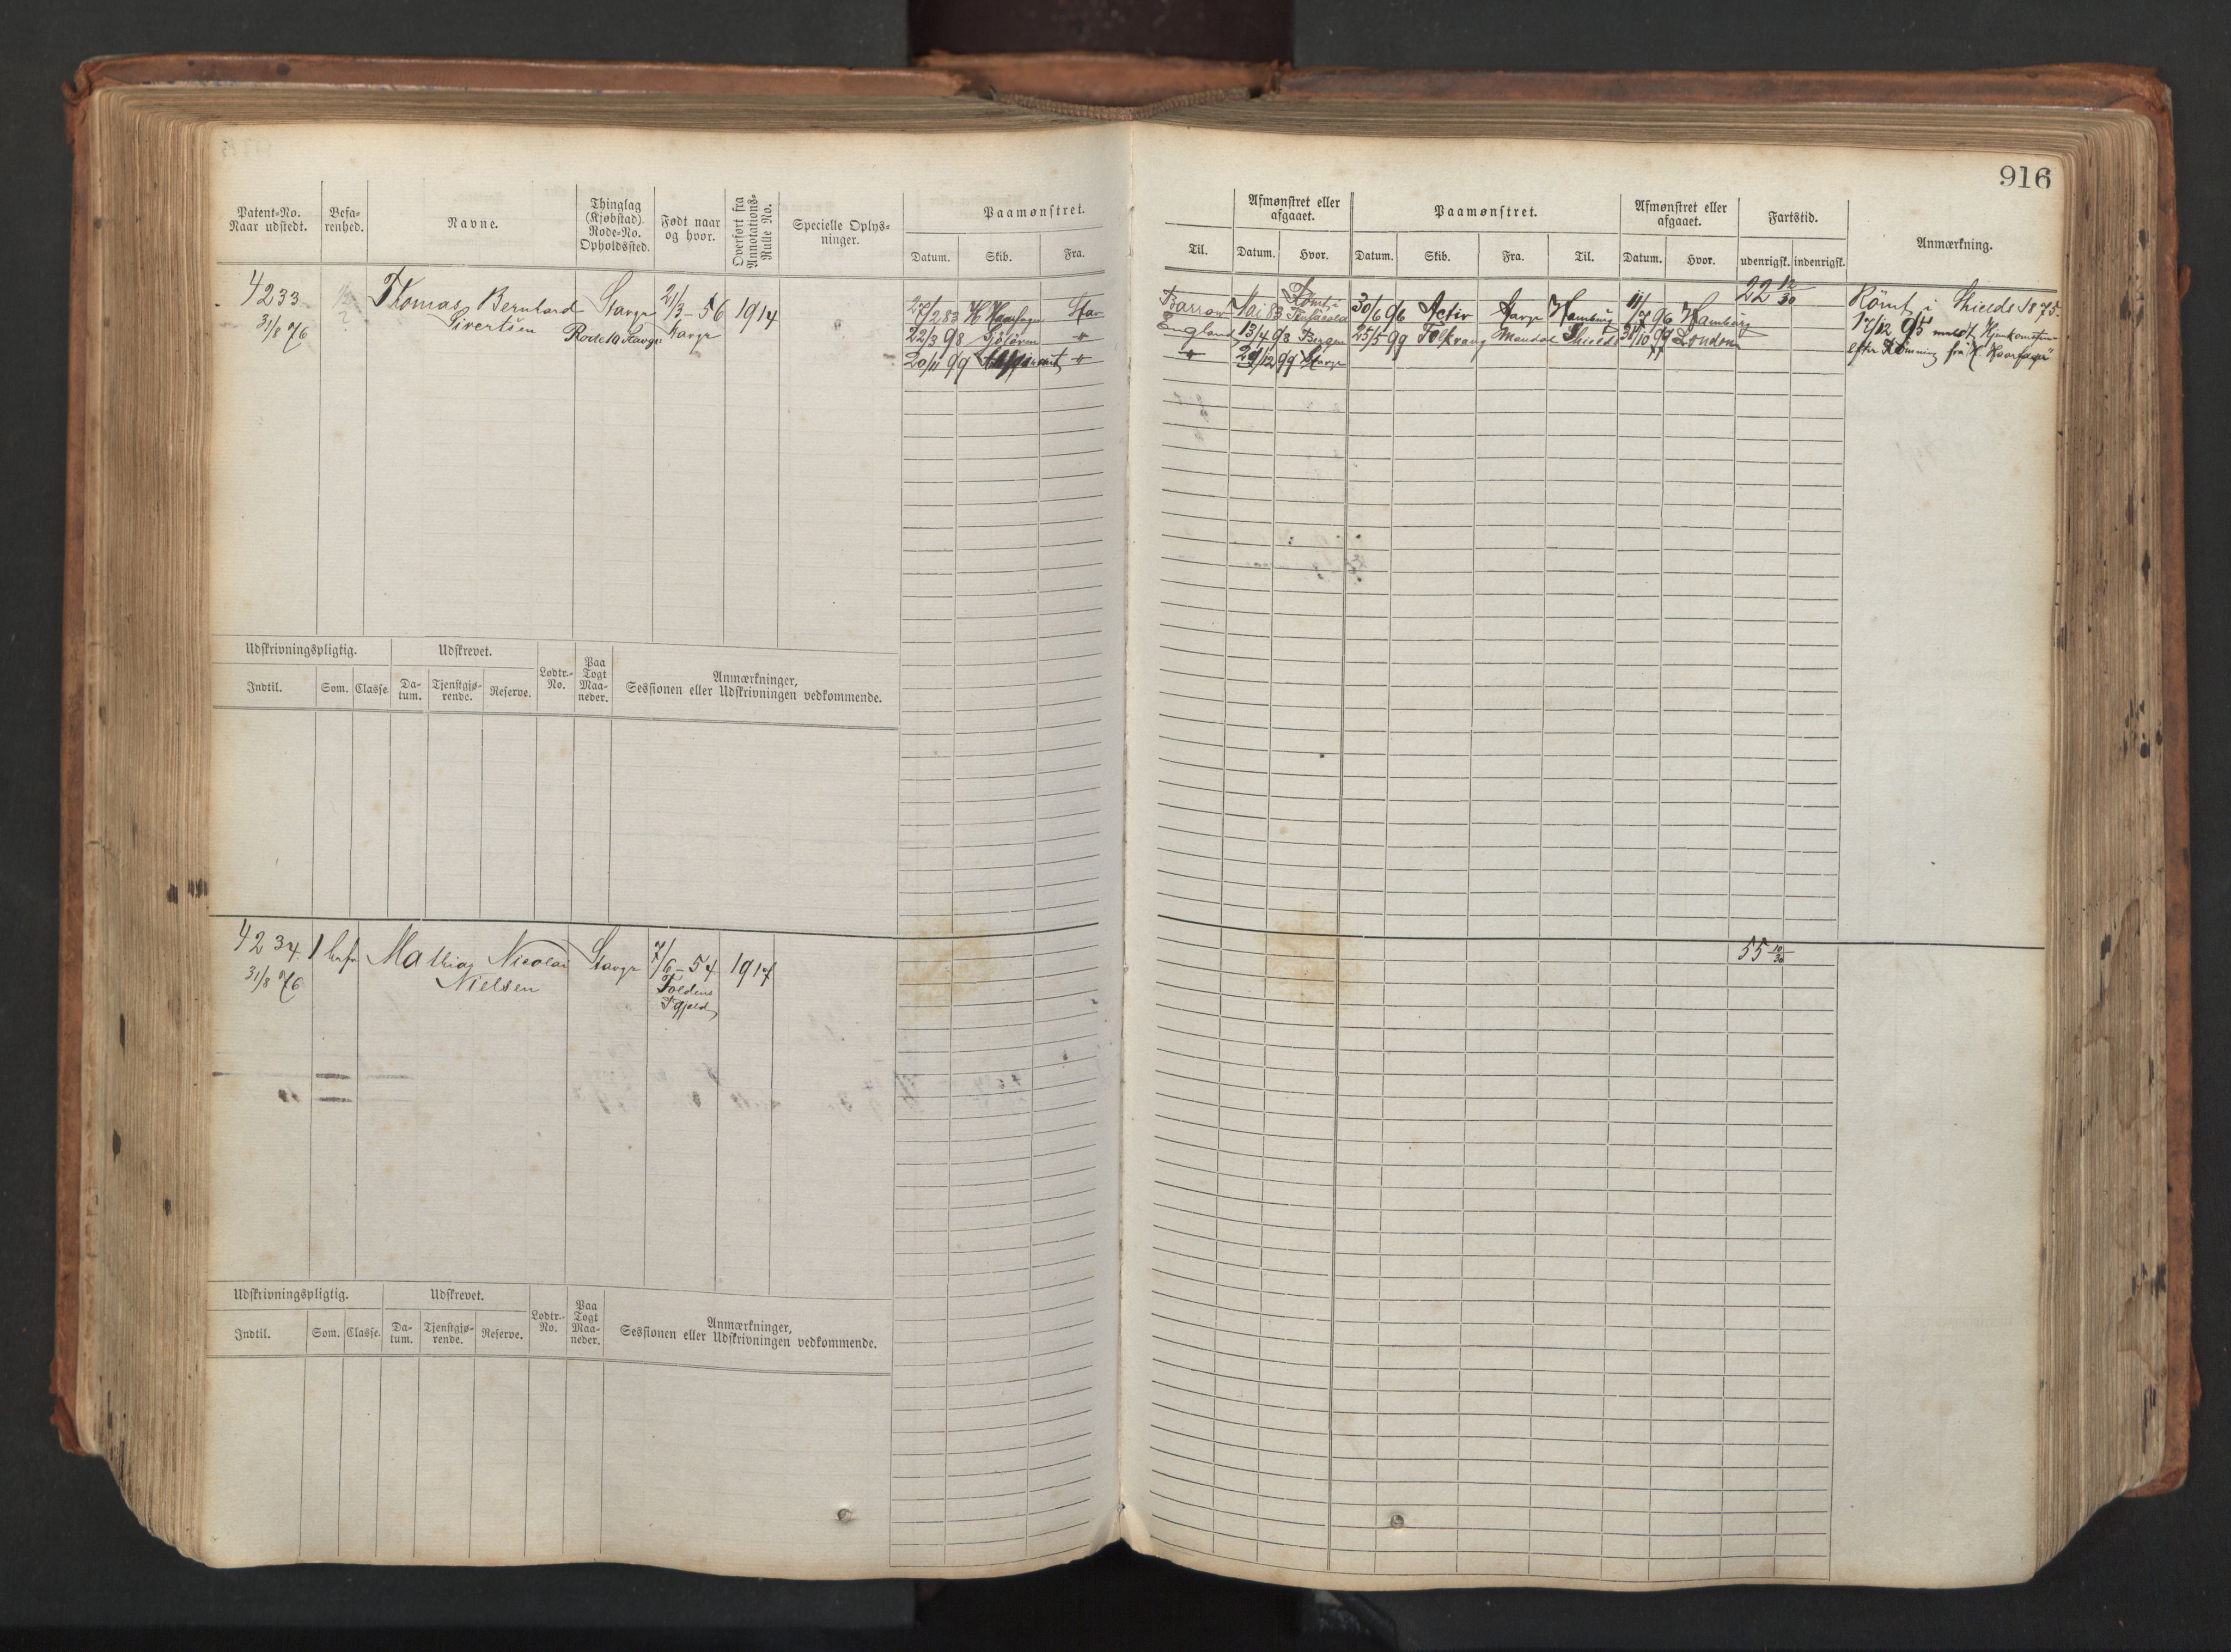 916
Patent=No. Naar udstedt.
Befa= renhed.
Navne.
Thinglag (Kjøbstad). Rode=No. Opholdssted.
Født naar og hvor.
Overført fra Annotations= Rulle No.
Specielle Oplys= ninger.
Paamønstret.
Datum. Skib. Fra.
Til.
Afmønstret eller afgaaet.
Datum. Hvor.
Paamønstret.
Datum. Skib. Fra. Til.
Afmønstret eller afgaaet.
Datum. Hvor.
Fartstid.
udenrigsk. indenrigsk.
Anmærkning.
4233
31/8 76
Thomas Bernhard
Sivertsen
Stavgr
Rode 10 Stavgr
21/3-56
Stavgr
1914
27/2 83 H Haarfager Stav
22/3 98 "
20/11 99 "
Barrow Mai 83 Rømt i
England 13/4 98 Bergen
" 29/12 99 Stavgr
30/6 96 Activ Stavgr Hamburg 11/7 96 Hamburg
25/5 99 Folkvang Mandal Shields 31/10 99 London
22 12/30
Römt i Shields 1875.
17/12 95 meldt Hjemkomsten
efter Römning fra "H. Haarfager"
Udskrivningspligtig.
Indtil. Som. Classe
Udskrevet.
Da= tum. Tjenstgjø= rende. Reserve.
Lodtr.= No.
Paa Togt Maa= neder.
Anmærkninger,
Sessionen eller Udskrivningen vedkommende.
4234
31/8 76
1 befr
Mathias Nicolai
Nielsen
Stavgr
7/6-54
1917
55 10/30
Udskrivningspligtig.
Indtil. Som. Classe.
Udskrevet.
Da= tum. Tjenstgjø= rende. Reserve.
Lodtr.= No.
Paa Togt Maa= neder.
Anmærkninger,
Sessionen eller Udskrivningen vedkommende.